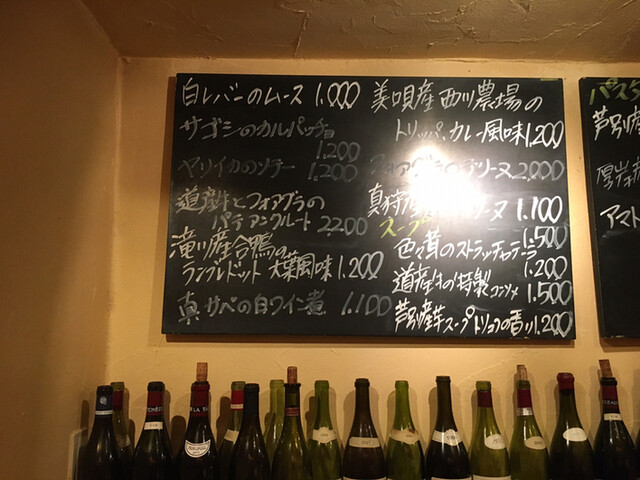 白レバーのムース 1.000
サゴシのカルパッチョ
1.200
ヤリイカのソテー 1.200
フォアグラの
パテアンクルート 2.200
滝川産合鴨の
ランプレドット 大葉風味 1.200
の白ワイン煮 1.100
美唄産西川農場の
トリッパ、カレー風味 1.200
フォアグラのテリーヌ 2.000
真狩産 リーヌ 1.100
スープ
1.500
色々茸のストラッチャテッラ
1.200
道産 の特製コンソメ 1.500
芦別産芋スープトリュフの香り 1.200
パスタ
芦別産
アマト